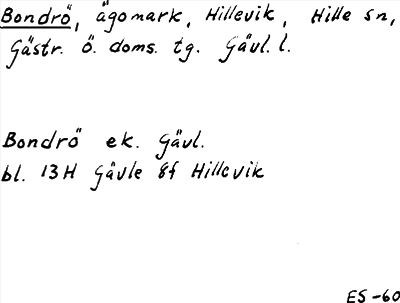 Bondrö, ägomark, Hillevik, Hille sn,
Gästr. ö. doms. tg. Gävl. l.
Bondrö ek. Gävl.
bl. 13H Gävle 8f Hillevik
ES-60